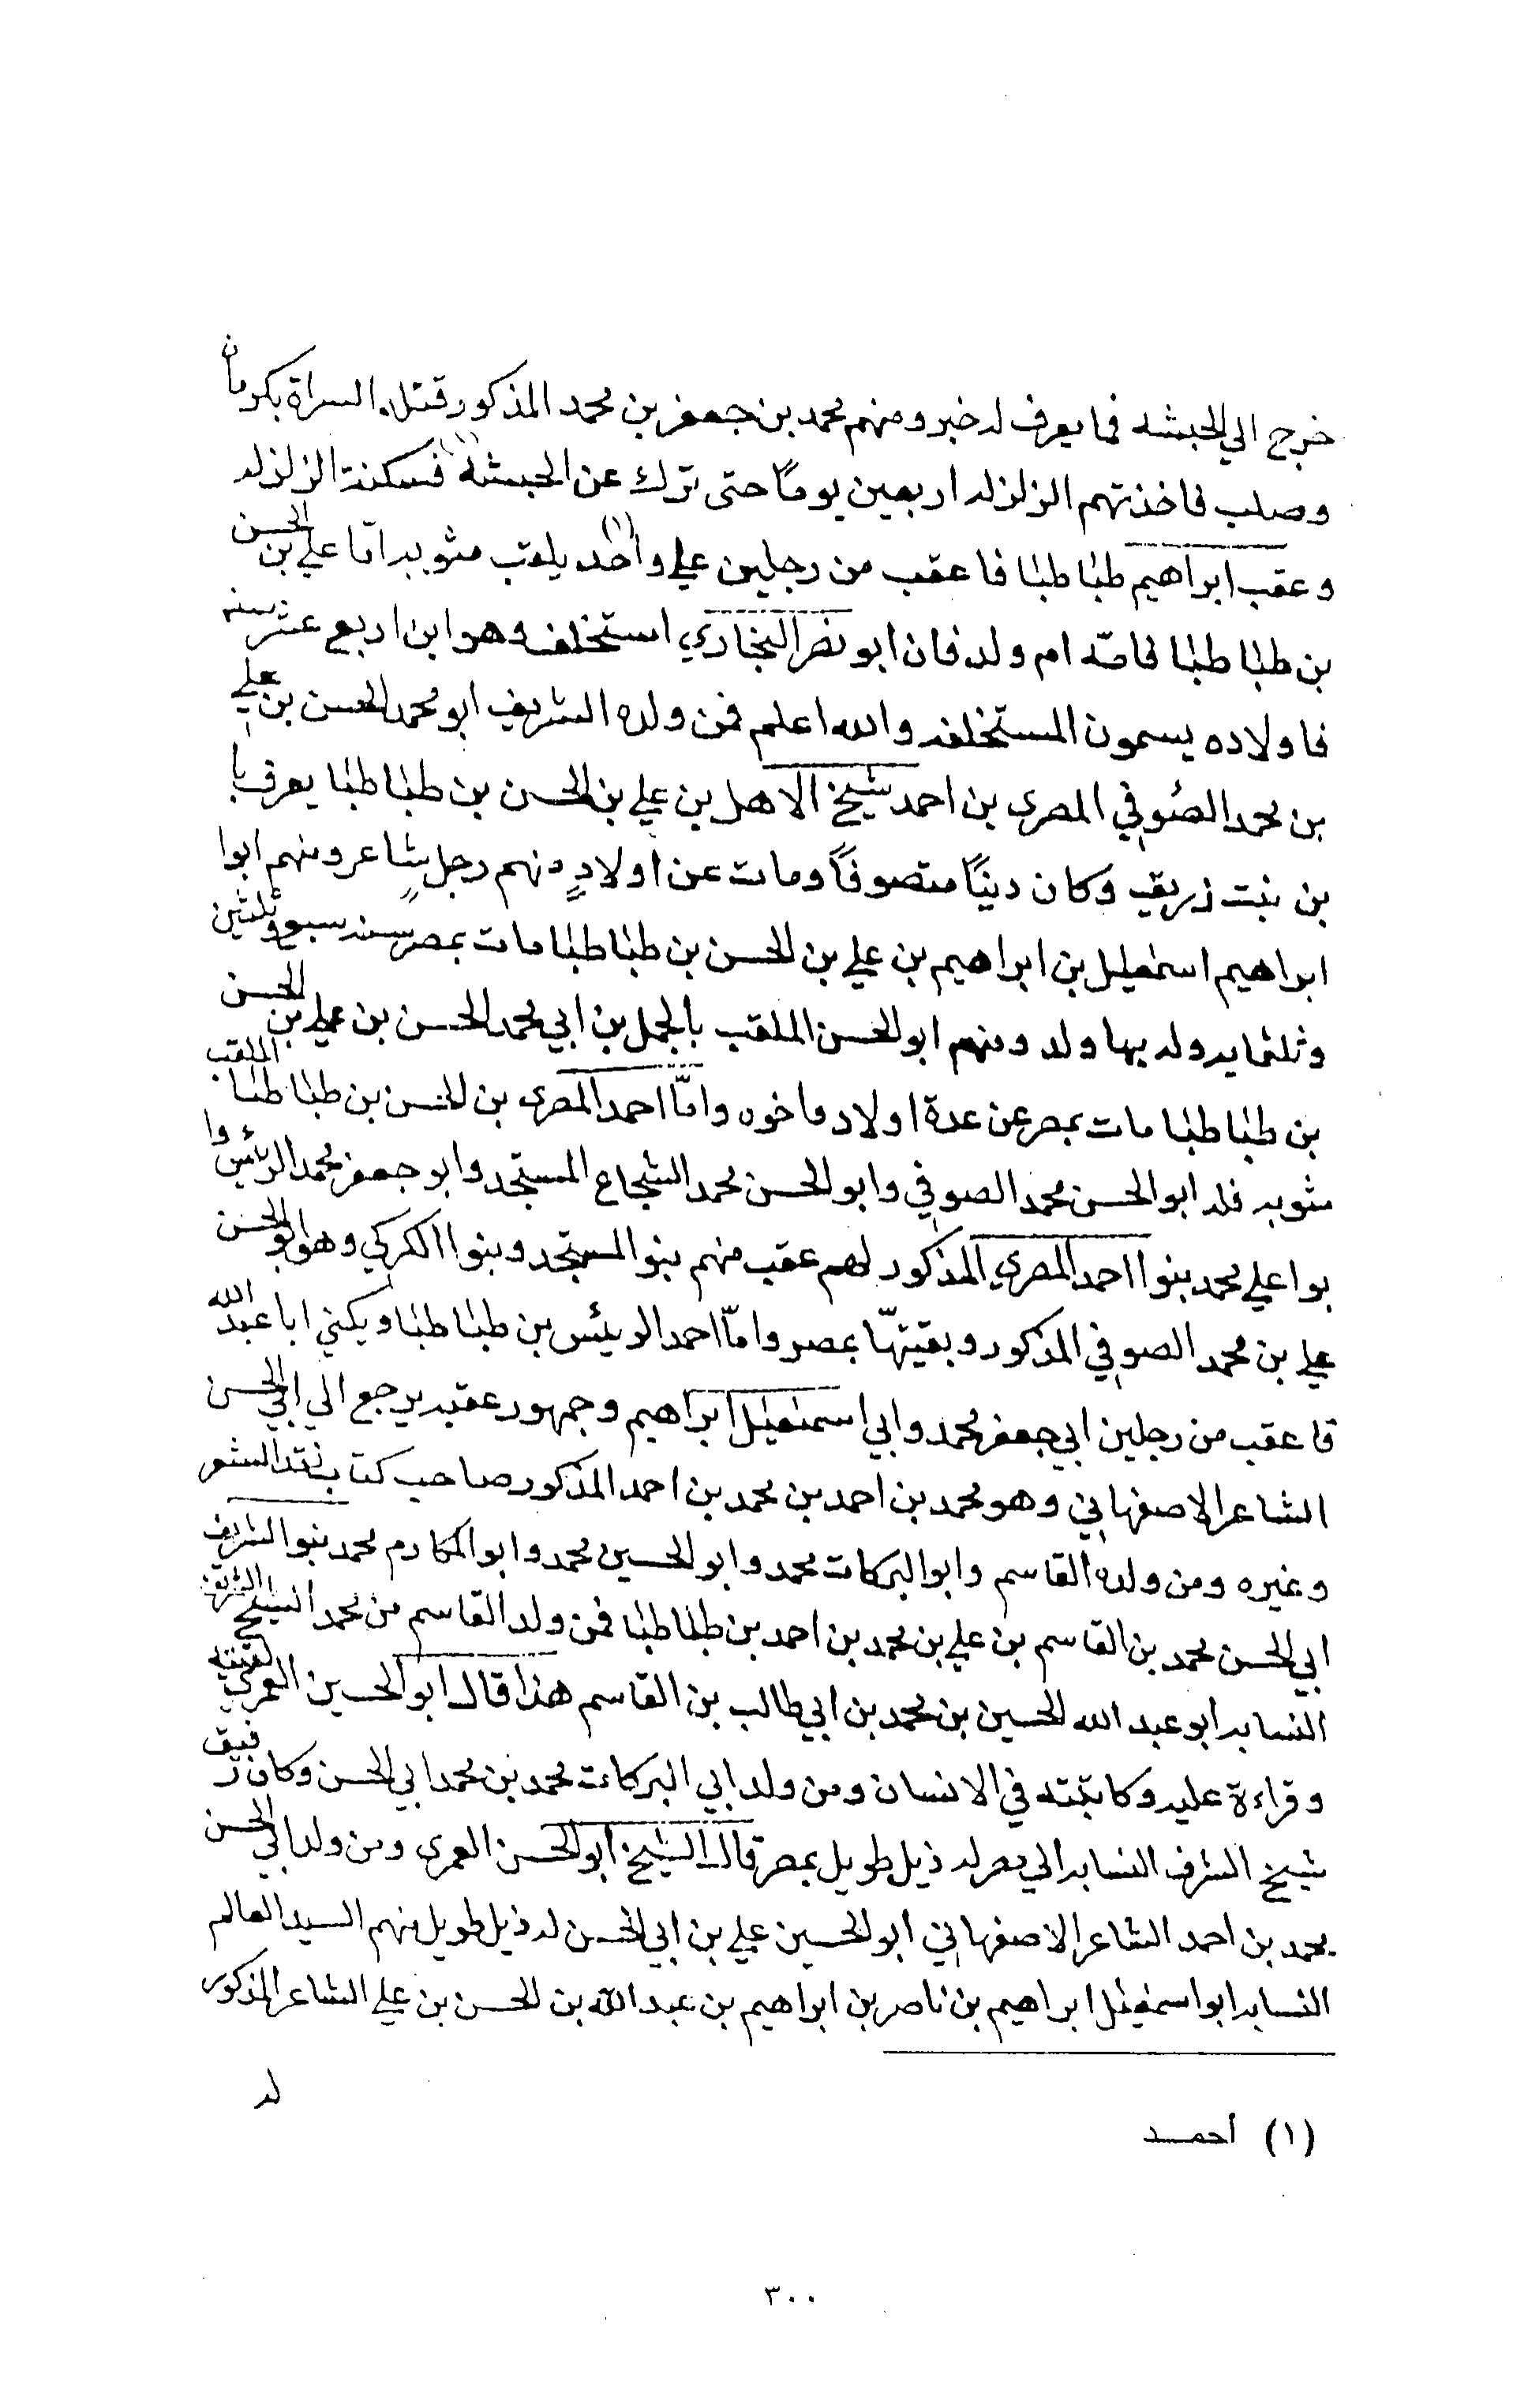 خرج الي الحبشه فما يعرف له خبر ومنهم محمد بن جعفر بن محمد المذكور قتله السراة بكرمان
وصلب فاخذتهم الزلزله اربعين يومًا حتى ترك عن الخشبة فسكنة الزلزله
وعقب ابراهيم طباطبا فاعقب من رجلين علي واحد (١) يلقب مثويه امّا علي بن الحسن
بن طباطبا فامّه ام ولد فان ابو نصر البخاري استخلفه وهو ابن اربع عشر سنه
فاولاده يسمون المستخلفه والله اعلم فمن ولده الشريف ابو محمد الحسن بن علي
بن محمد الصوفي المصري بن احمد شيخ الاهل بن علي بن الحسن بن طباطبا يعرف با
بن بنت زريق وكان دينًا متصوفًا ومات عن اولادٍ منهم رجل شاعر ومنهم ابوا
ابراهيم اسمعيل بن ابراهيم بن علي بن الحسن بن طباطبا مات بمصر سنه سبع وثلثين
وثلثمايه وله بها ولد ومنهم ابو الحسن الملقب بالجمل بن ابي محمد الحسن بن علي بن الحسن
بن طباطبا مات بمصر عن عدة اولاد واخوه وامّا احمد المصري بن الحسن بن طباطبا الملقب
مثويه فله ابو الحسن محمد الصوفي وابو الحسن محمد الشجاع المستجد وابو جعفر محمد الرئيس وا
بوا علي محمد بنوا احمد المصري المذكور لهم عقب منهم بنو المستجد وبنوا الكركي وهو ابو الحسن
علي بن محمد الصوفي المذكور وبقيتهّا بمصر وامّا احمد الرئيس بن طباطبا ويكني ابا عبد الله
فاعقب من رجلين ابي جعفر محمد وابي اسمعيل ابراهيم وجمهور عقبه يرجع الي ابي الحسن
الشاعر الاصفهاني وهو محمد بن احمد بن محمد بن احمد المذكور صاحب كتاب نقد الشعر
وغيره ومن ولده القاسم وابوا البركات محمد وابو الحسين محمد وابو المكارم محمد بنوا الشريف
ابي الحسن محمد بن القاسم بن علي بن محمد بن احمد بن طباطبا فمن ولد القاسم من محمد الشيخ
النسابه ابو عبد الله الحسين بن محمد بن ابي طالب بن القاسم هذا قال ابو الحسين العمري لقيته
وقراءة عليه وكاتبته في الانسان ومن ولد ابي البركات محمد بن محمد ابي الحسن وكان رفيق
شيخ الشرف النسابه الي مصر له ذيل طويل بمصر قال الشيخ ابو الحسن العمري ومن ولد ابي الحسن
محمد بن احمد الشاعر الاصفهاني ابو الحسين علي بن ابي الحسن له ذيل طويل منهم السيد العالم
النسابه ابو اسمعيل ابراهيم بن ناصر بن ابراهيم بن عبد الله بن الحسن بن علي الشاعر المذكور
له
(١) أحمد
٣٠٠